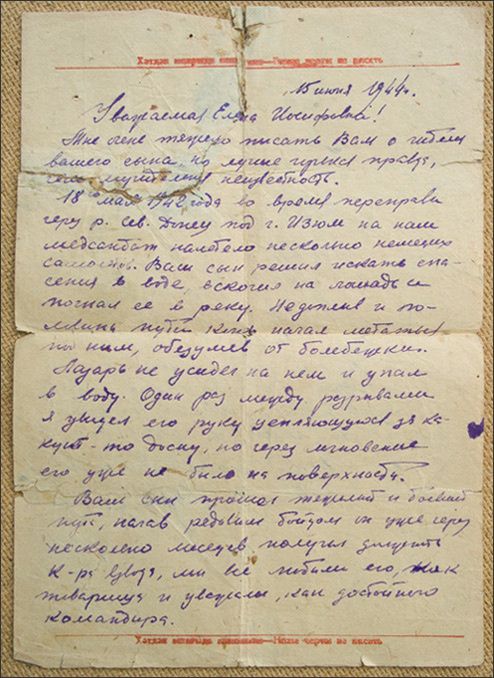 15 июня 1944г.
Уважаемая Елена Иосифовна!
Мне очень тяжело писать Вам о гибели
вашего сына, но лучше горькая правда,
чем мучительная неизвестность.
18 мая 1942 года во время переправы
через р. Сев. Донец под г. Изюм на наш
медсанбат налетело несколько немецких
самолетов. Ваш сын решил искать спа-
сения в воде, вскочил на лошадь и
погнал ее в реку. Не доплыв и по-
ловины пути конь начал метаться
под ним, обезумев от бомбежки.
Лазарь не усидел на нем и упал
в воду. Один раз между разрывами
я увидел его руку цепляющуюся за ка-
кую-то доску, но через мгновение
его уже не было на поверхности.
Ваш сын прошел тяжелый и боевой
путь, начав рядовым бойцом он уже через
несколько месяцев получил должность
к-ра взвода, мы все любили его, как
товарища и уважали, как достойного
командира.